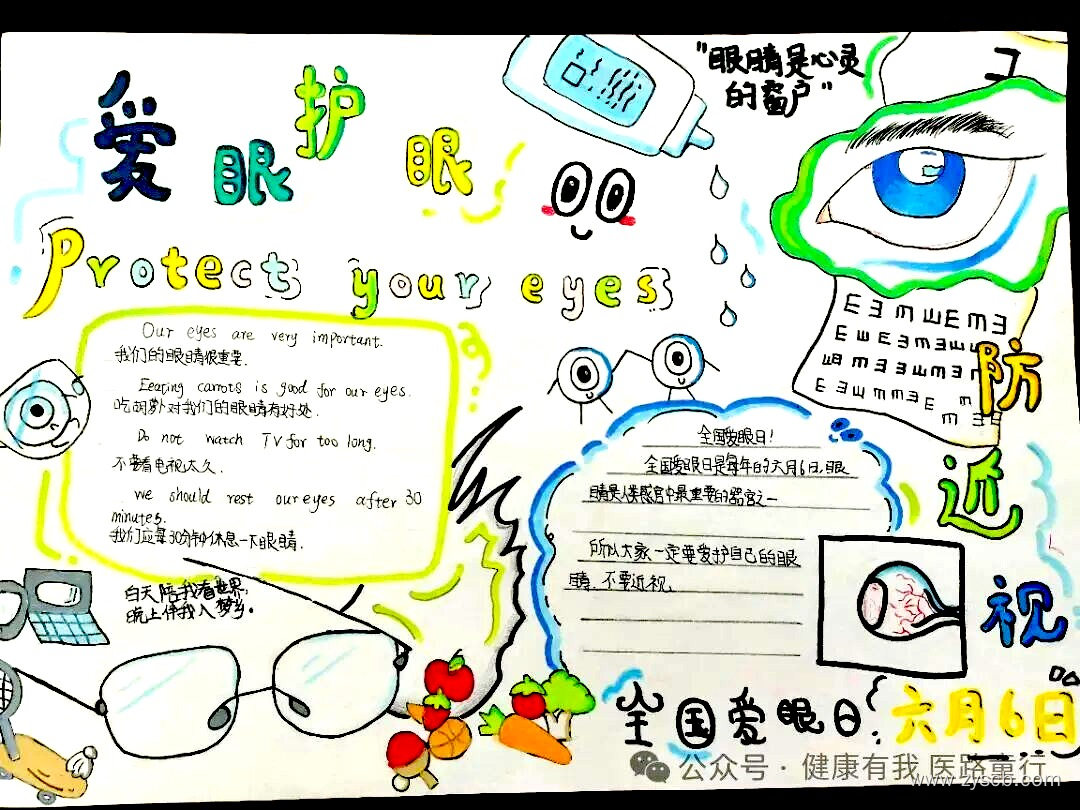 爱眼护眼
"眼睛是心灵
的窗户"
Protect your eyes
Our eyes are very important.
我们的眼睛很重要.
Eearing carrots is good for our eyes.
吃胡萝卜对我们的眼睛有好处.
Do not watch TV for too long.
不要看电视太久.
we should rest our eyes after 30
minutes.
我们应每30分钟休息一下眼睛.
白天陪我看世界,
晚上伴我入梦乡。
全国爱眼日!
全国爱眼日是每年的六月6日,眼
睛是人类感官中最重要的器官之一
所以大家一定要爱护自己的眼
睛,不要近视.
防近视
全国爱眼日:六月6日
公众号·健康有我 医路童行
www.zyscb.com